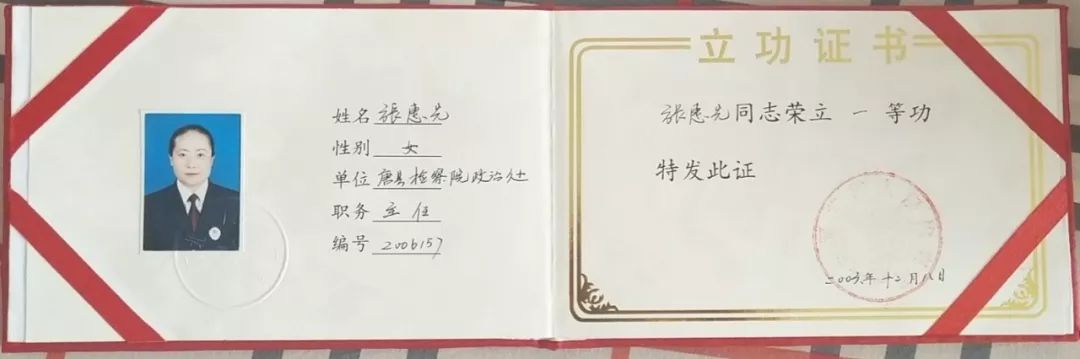 姓名 张惠先
性别 女
单位 唐县检察院政治处
职务 主任
编号 2006157
立功证书
张惠先同志荣立 一 等功
特发此证
二00六年十二月八日